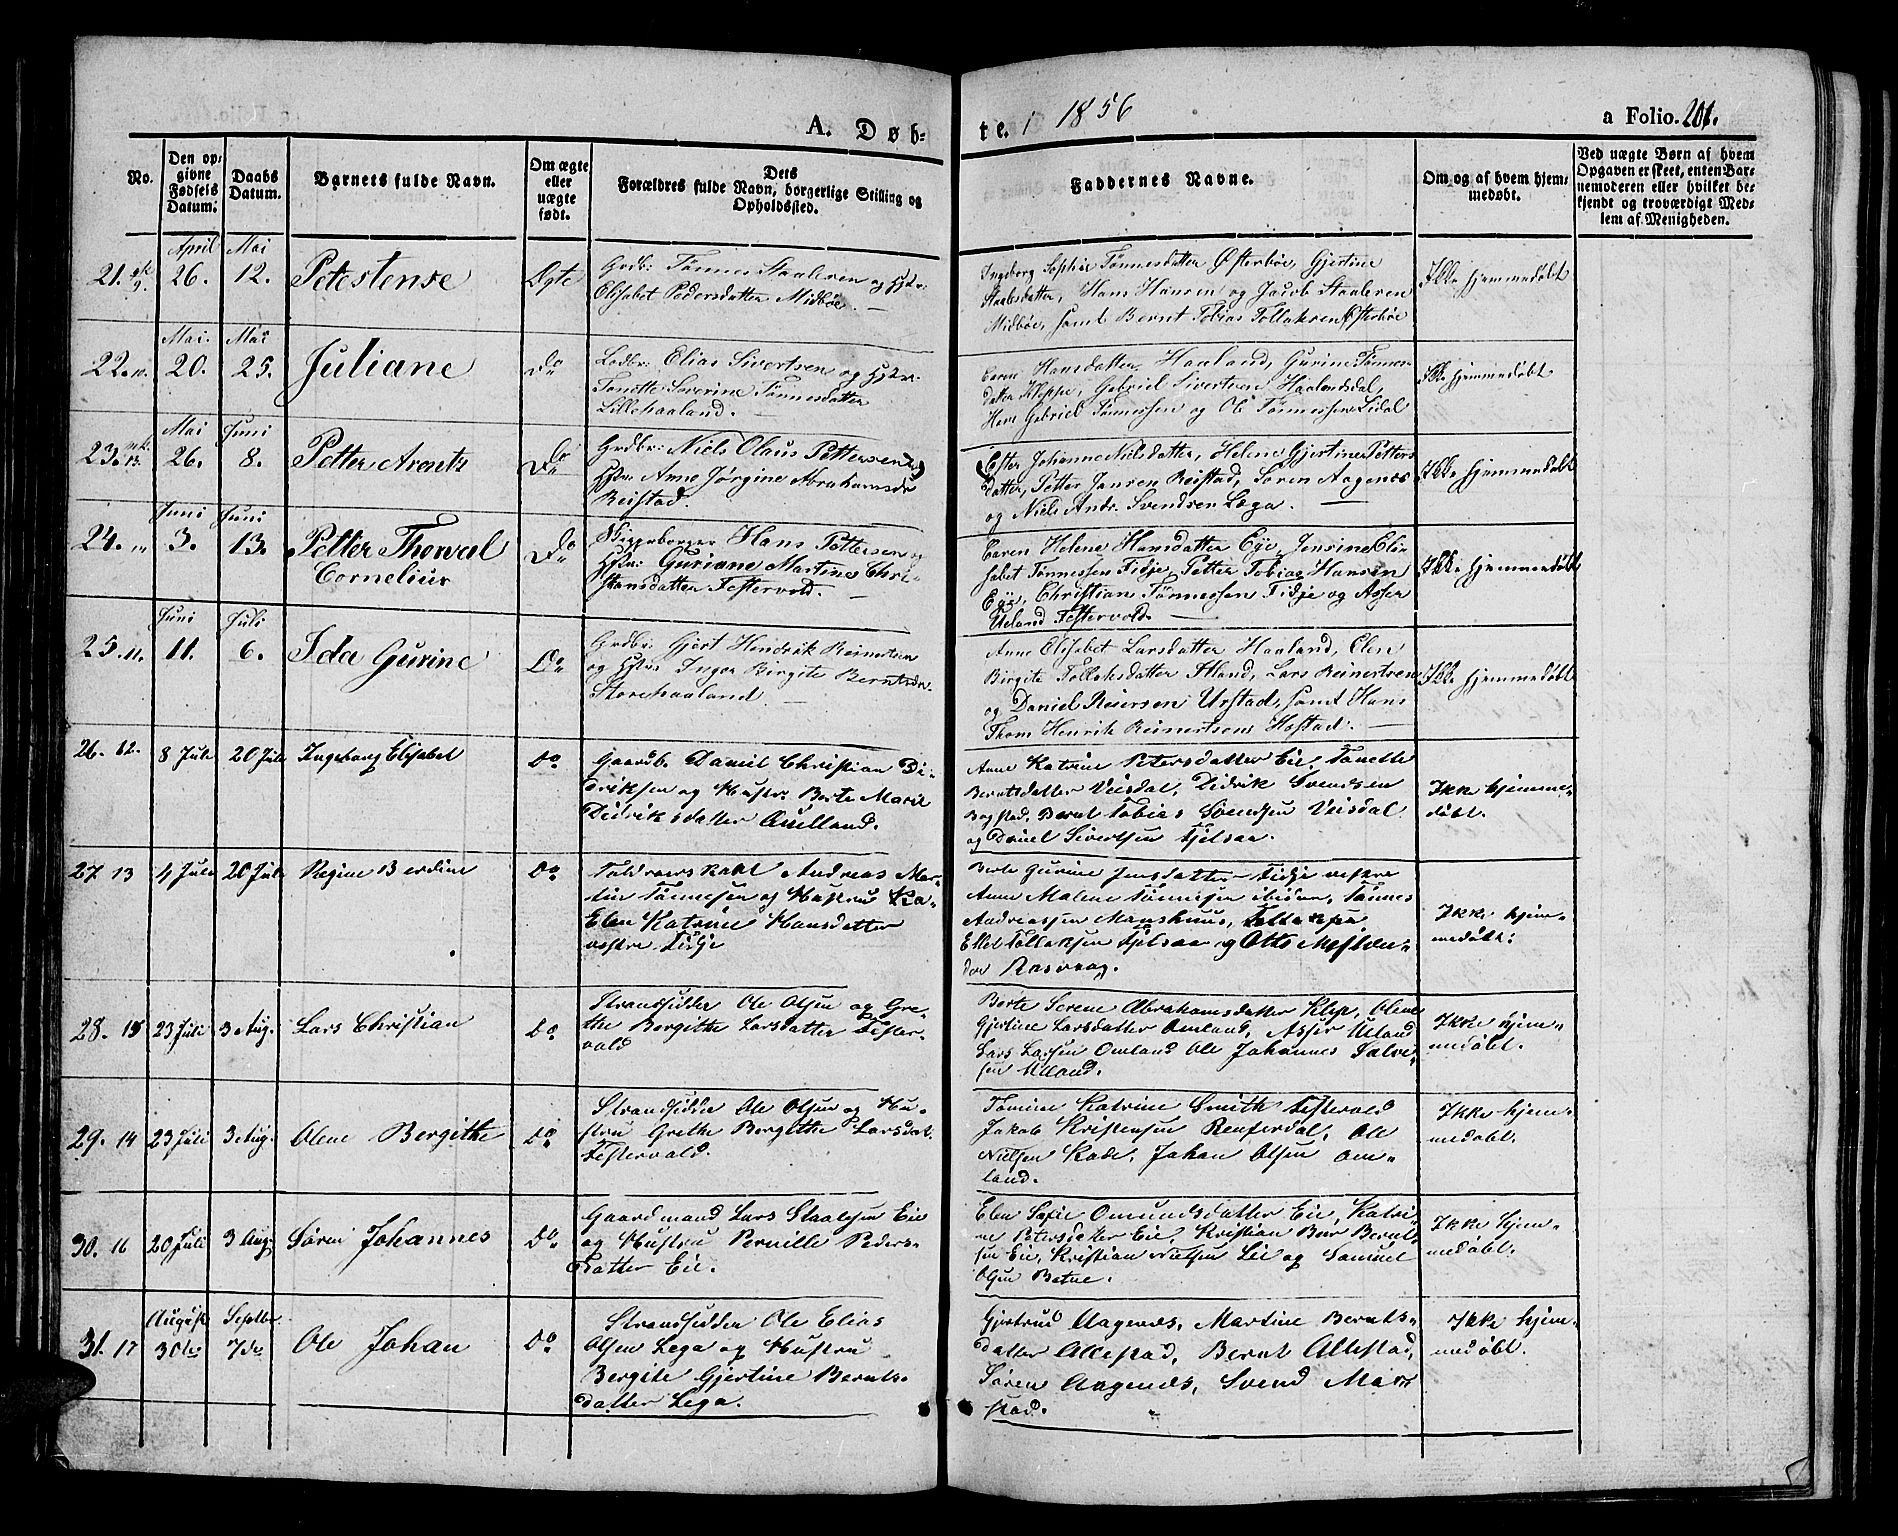 A. Døb-
te i 1856
a Folio. 201.
No.
Den op-
givne
Fødsels
Datum.
Daabs
Datum.
Barnets fulde Navn.
Om ægte
eller
uægte
født.
Dets
Forældres fulde Navn, borgerlige Stilling og
Opholdssted.
Faddernes Navne.
Om og af hvem hjem-
medøbt.
Ved uægte Børn af hvem
Opgaven er skeet, enten Bar-
nemoderen eller hvilket be-
kjendt og troværdigt Med-
lem af Menigheden.
April Mai
21. 9. 26. 12. Petestense Ægte
Grdbr: Tønnes Staalesen og Hstr:
Elisabet Pedersdatter Midbøe. —
Ingeborg Sophie Tønnesdatter Østerbøe, Gjertine
Staalesdatter, Hans Hansen og Jacob Staalesen
Midbøe, samt Bernt Tobias Tollaksen Østerbøe
Ikke hjemmedøbt
Mai. Mai
22. 10. 20. 25. Juliane Do
Ledbr: Elias Sivertsen og Hstr.
Tonette Severine Tønnesdatter
Lillehaaland. —
Caren Hansdatter Haaland, Gurine Tønnes-
datter Kleppe, Gabriel Sivertsen Haalandsdal,
Hans Gabriel Tønnessen og Ole Tønnessen Lidal
Ikke hjemmedøbt
Mai Juni
23. 13. 26. 8. Petter Arentz Do
Grdbr: Niels Olaus Pettersen og
Hstr: Anne Jørgine Abrahamsdr
Reistad.
Ester Johanne Nilsdatter, Helene Gjertine Petters
datter, Petter Jansen Reistad, Søren Aagenes
og Niels Andr. Svendsen Læga. —
Ikke hjemmedøbt
Juni Juni
24. 3. 13. Petter Thorval
Cornelius Do
Hans Pettersen og
Hstr: Guriane Martine Chri-
stansdatter Festervold. —
Caren Helene Hansdatter Eye, Jensine Eli-
sabet Tønnessen Fidje, Petter Tobias Hansen
Eye, Christian Tønnessen Fidje og Asser
Ueland Festervold. —
Ikke hjemmedøbt
Juni Juli
25. 11. 11. 6. Ida Gurine Do
Grdbr: Gjert Hendrik Reinertsen
og Hstr: Inger Birgite Berntsdr.
Storehaaland. —
Anne Elisabet Larsdatter Haaland, Elen
Birgite Tollaksdatter Fland, Lars Reinertsen
og Daniel Reiersen Urstad, samt Hans
Thom Henrik Reinertsen Høstad. —
Ikke hjemmedøbt
26. 12. 8 Juli 20 Juli Ingeborg Elisabet Do
Gaardb. Daniel Christian Di-
driksen og Hustr: Berte Marie
Didriksdatter Qvilland.
Anne Katrine Petersdatter Eie, Tonette
Berntsdatter Veisdal, Didrik Svendsen
Bogstad, Bernt Tobias Svendsen Veisdal
og Daniel Sivertsen Fjelsaa.
Ikke hjemme-
døbt.
27. 13 4 Juli 20 Juli Regine Berdine Do
Toldroerskarl Andreas Mar-
tin Tønnesen og Hustru
Elen Katrine Hansdatter
vestre Fidje
Berte Gurine Jensdatter Fidje vestre
Anne Malene Tønnesen ibidem, Tønnes
Andreassen
Tollaksen Fjelsaa og Otto
Rasvaag.
Ikke hjem-
medøbt.
28. 15 23 Juli 3 Aug. Lars Christian Do
Strandsidder Ole Olsen og Gre-
the Bergithe Larsdatter Fester-
vald
Berte Serene Abrahamsdatter Klep, Olene
Gjertine Larsdatter Omland, Asser Uland
Lars Larsen Omland Ole Johannes Salve-
sen Uland.
Ikke hjem-
medøbt.
29. 14 23 Juli 3 Aug. Olene Bergithe Do
Strandsidder Ole Olsen og Hu-
stru Grethe Bergithe Larsdat.
Festervald.
Tomine Katrine Smith Festervald
Jakob Kristensen Renferdal, Ole
Nielsen Kade, Johan Olsen Om-
land.
Ikke hjem-
medøbt.
30. 16 20 Juli 3 Aug. Søren Johannes Do
Gaardmand Lars Staalesen Eie
og Hustru Pernille Peders-
datter Eie.
Elen Sofie Omundsdatter Eie, Katri-
ne Petersdatter Eie, Kristian Bernt-
sen Eie, Kristian Nielsen Eie og Samuel
Olsen Betne.
Ikke hjem-
medøbt.
August Septbr.
31. 17 30te 7de Ole Johan Do
Strandsidder Ole Elias
Olsen Lega og Hustru
Bergite Gjertine Bernts-
datter Lega.
Gjertrud Aagenæs, Martine Bernts-
datter Allestad, Bernt Allestad,
Søren Aagenæs, Svend
stad.
Ikke hjem-
medøbt.